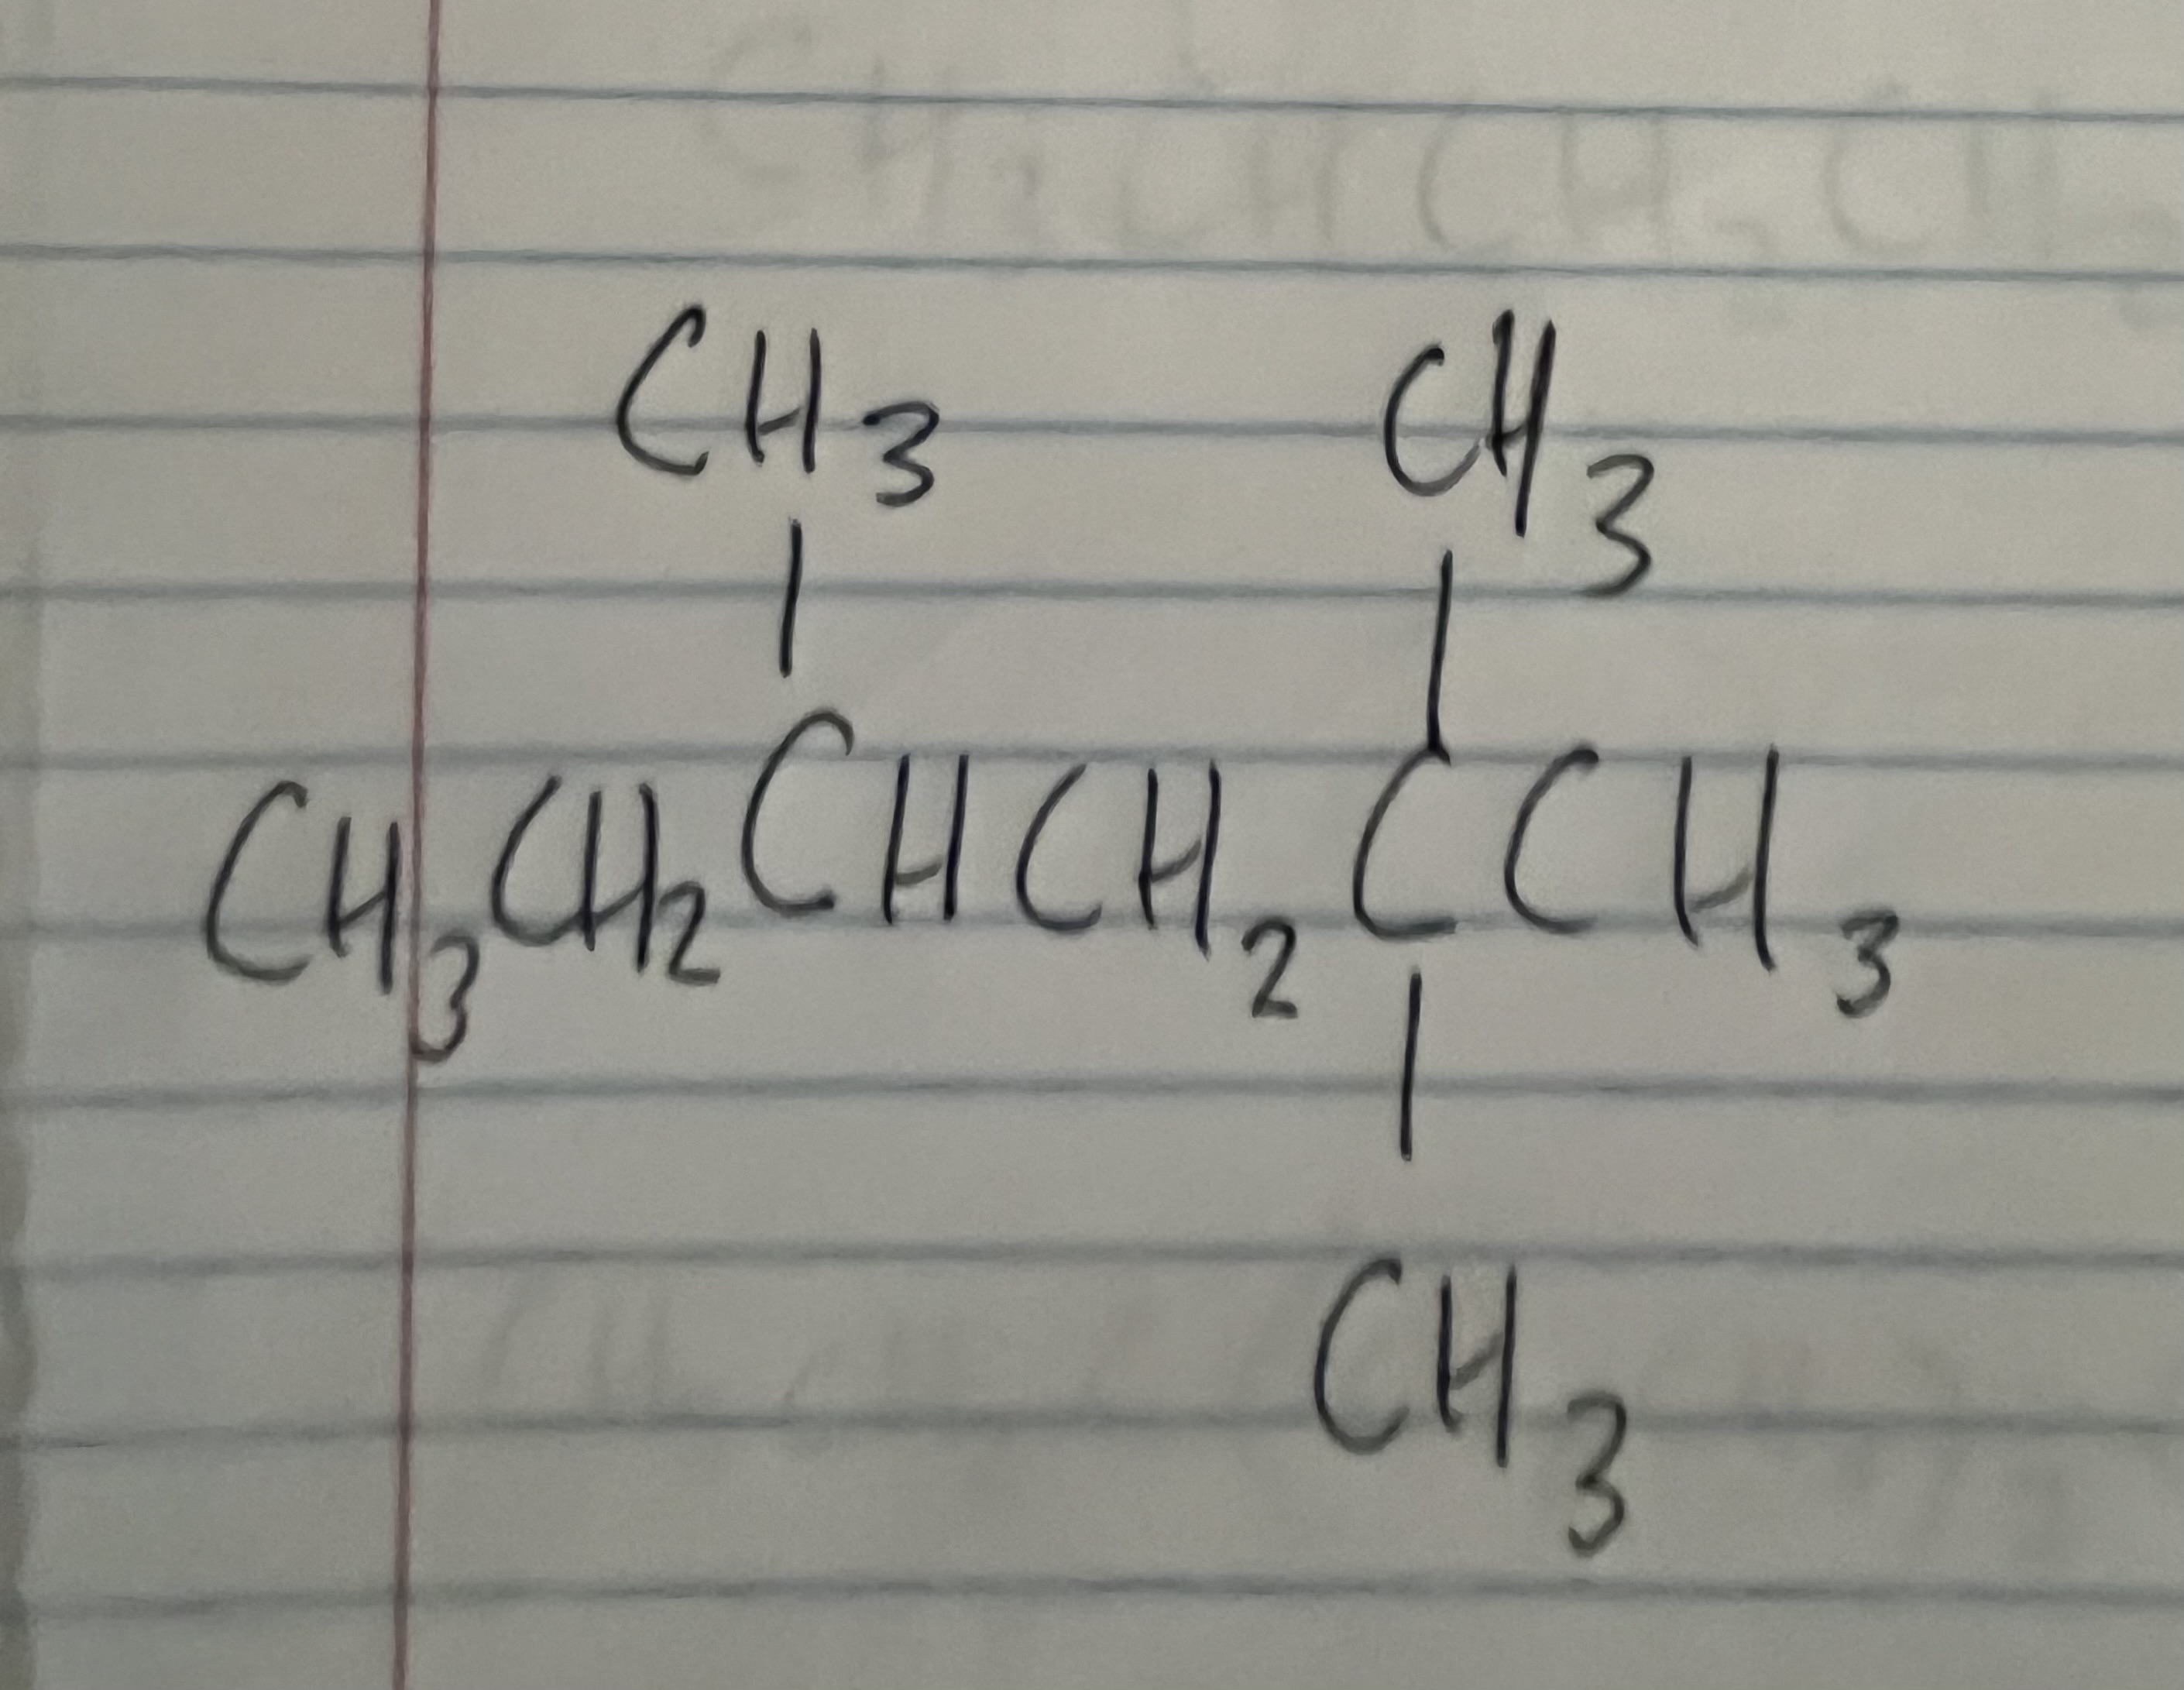 CH3 CH3
CH3CH2CHCH2CCH3
CH3